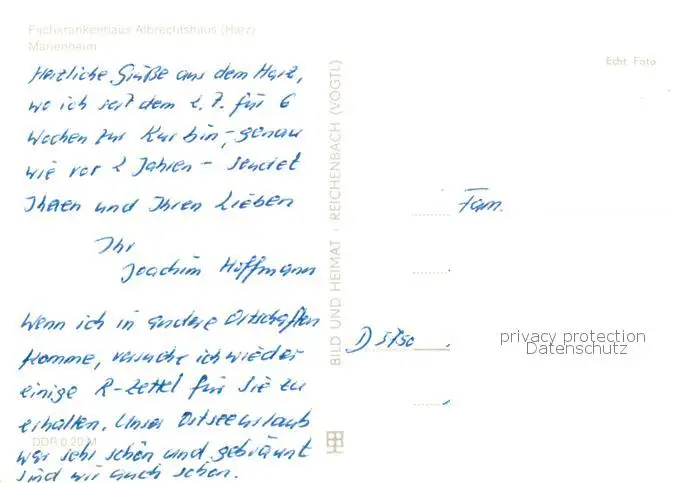 Fachkrankenhaus Albrechtshaus (Harz)
Marienheim
Echt Foto
Herzliche Grüße aus dem Harz,
wo ich seit dem 2.7. für 6
Wochen zur Kur bin, genau
wie vor 2 Jahren - sendet
Ihnen und Ihren Lieben
Ihr
Joachim Hoffmann
Wenn ich in andere Ortschaften
komme, versuche ich wieder
einige R-Zettel für Sie zu
erhalten. Unser Ostseeurlaub
war sehr schön und gebräunt
sind wir auch schon.
DDR 0,20 M
BILD UND HEIMAT · REICHENBACH (VOGTL)
Fam.
D 5750
privacy protection
Datenschutz